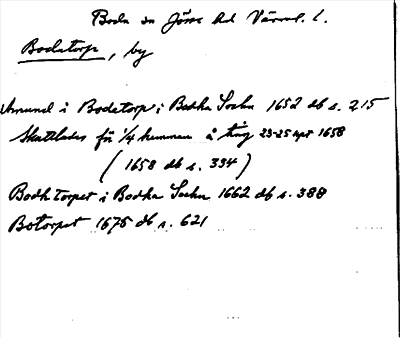 Boda sn Jösse hd Värml. l.
Bodatorp, by
Amund i Bodetorp i Bodha Sochn 1652 db s. 215
Skattlades för 1/4 hemman å ting 23-25 apr 1658
(1658 db s. 334)
Bodh torpet i Bodha Sochn 1662 db s. 388
Botorpet 1675 db s. 621